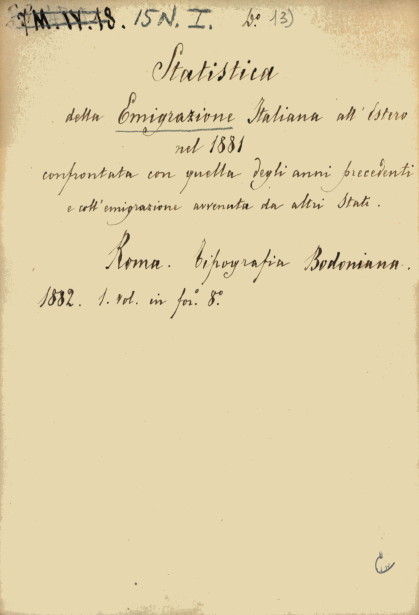 15 N. I. D.º 13)
Statistica
della Emigrazione Italiana all' Estero
nel 1881
confrontata con quella degli anni precedenti
e coll'emigrazione avvenuta da altri Stati.
Roma. Tipografia Bodoniana.
1882. 1. vol. in for.º 8.º